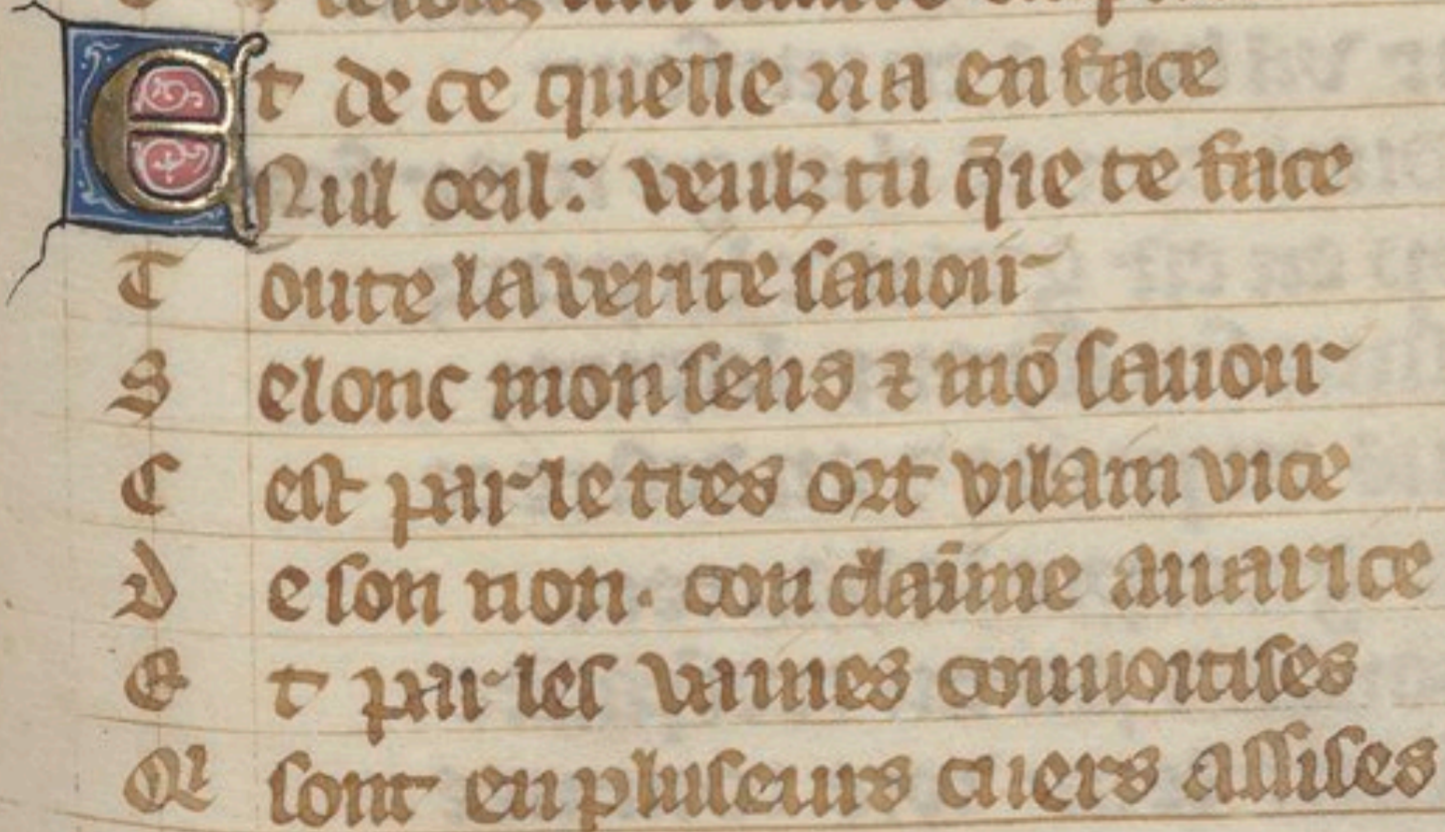 Et de ce quelle na en face
Nul oeil: veulz tu q̄ ie te face
Toute la verite sauoir
Selonc mon sens ⁊ mō sauoir
Cest par le tres ort vilain vice
De son non. con claĩme auarice
Et par les vaines conuoitises
Qͥ sont en pluseurs cuers assises